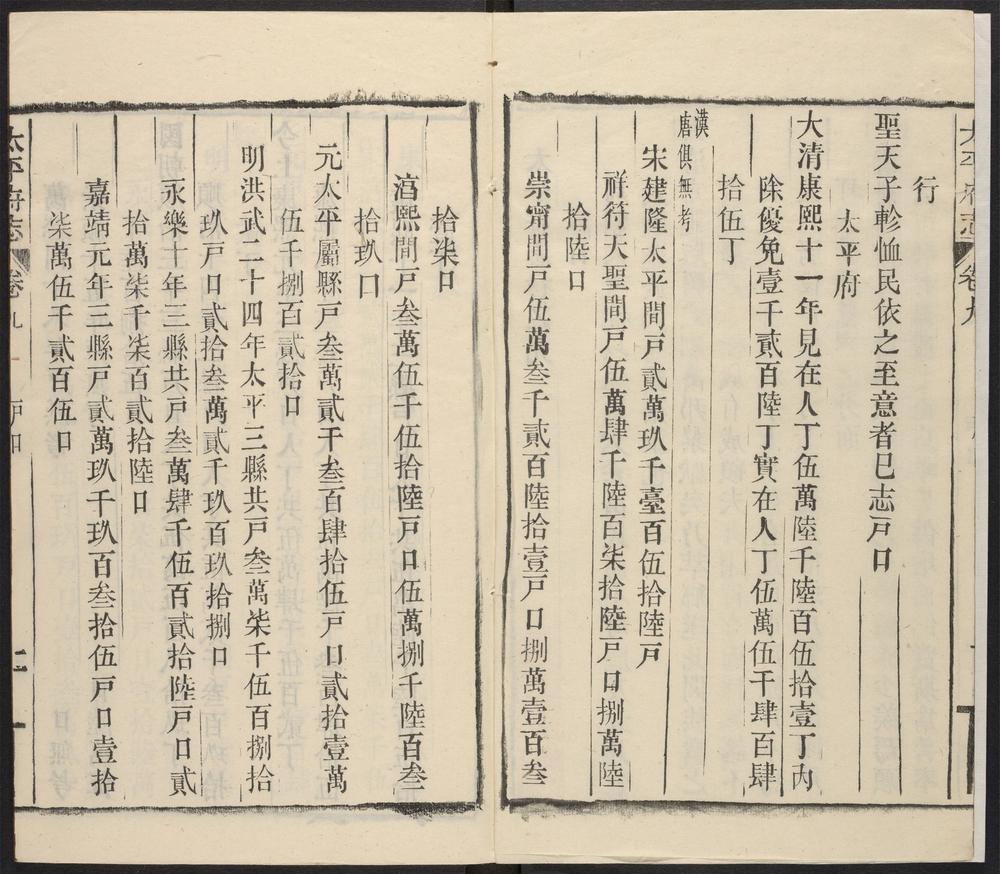 太平府志 卷九
行
聖天子軫恤民依之至意者已志戸口
太平府
大清康熙十一年見在人丁伍萬陸千陸百伍拾壹丁內
除優免壹千貳百陸丁實在人丁伍萬伍千肆百肆
拾伍丁
漢唐俱無考
宋建隆太平間戸貳萬玖千臺百伍拾陸戸
祥符天聖間戸伍萬肆千陸百柒拾陸戸口捌萬陸
拾陸口
崇甯間戸伍萬叁千貳百陸拾壹戸口捌萬壹百叁
拾柒口
熙間戸叁萬伍千伍拾陸戸口伍萬捌千陸百叁
拾玖口
元太平屬縣戸叁萬貳千叁百肆拾伍戸口貳拾壹萬
伍千捌百貳拾口
明洪武二十四年太平三縣共戸叁萬柒千伍百捌拾
玖戸口貳拾叁萬貳千玖百玖拾捌口
永樂十年三縣共戸叁萬肆千伍百貳拾陸戸口貳
拾萬柒千柒百貳拾陸口
嘉靖元年三縣戸貳萬玖千玖百叁拾伍戸口壹拾
柒萬伍千貳百伍口
太平府志 卷九 戸口